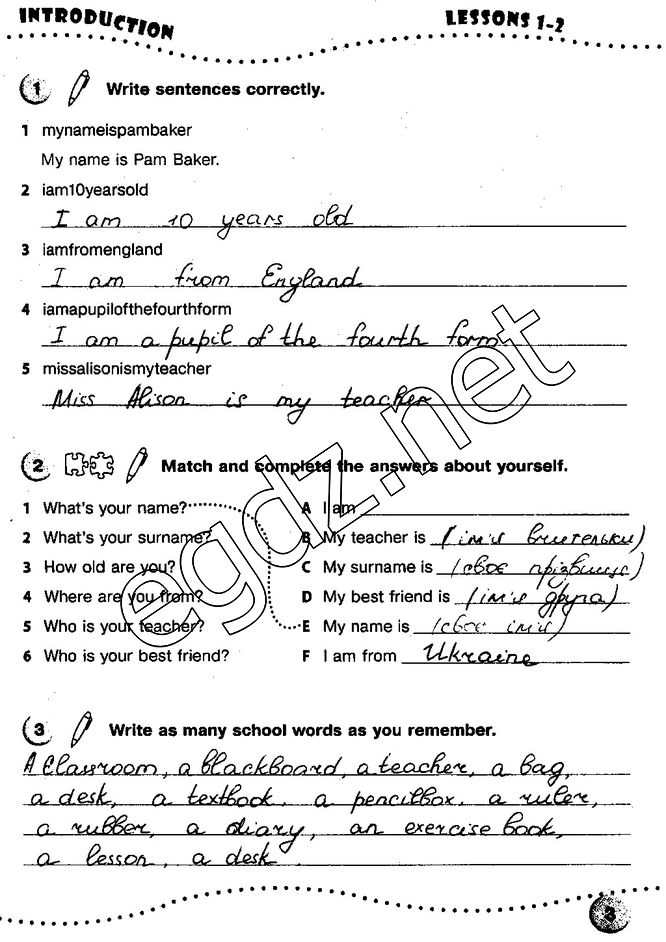 INTRODUCTION
LESSONS 1-2
1 Write sentences correctly.
1 mynameispambaker
My name is Pam Baker.
2 iam10yearsold
I am 10 years old
3 iamfromengland
I am from England
4 iamapupilofthefourthform
I am a pupil of the fourth form
5 missalisonismyteacher
Miss Alison is my teacher
2 Match and complete the answers about yourself.
1 What's your name?
A I am
2 What's your surname?
B My teacher is (ім'я вчительки)
3 How old are you?
C My surname is (своє прізвище)
4 Where are you from?
D My best friend is (ім'я друга)
5 Who is your teacher?
E My name is (своє ім'я)
6 Who is your best friend?
F I am from Ukraine
3 Write as many school words as you remember.
A classroom, a blackboard, a teacher, a bag,
a desk, a textbook, a pencilbox, a ruler,
a rubber, a diary, an exercise book,
a lesson, a desk
3
egdz.net